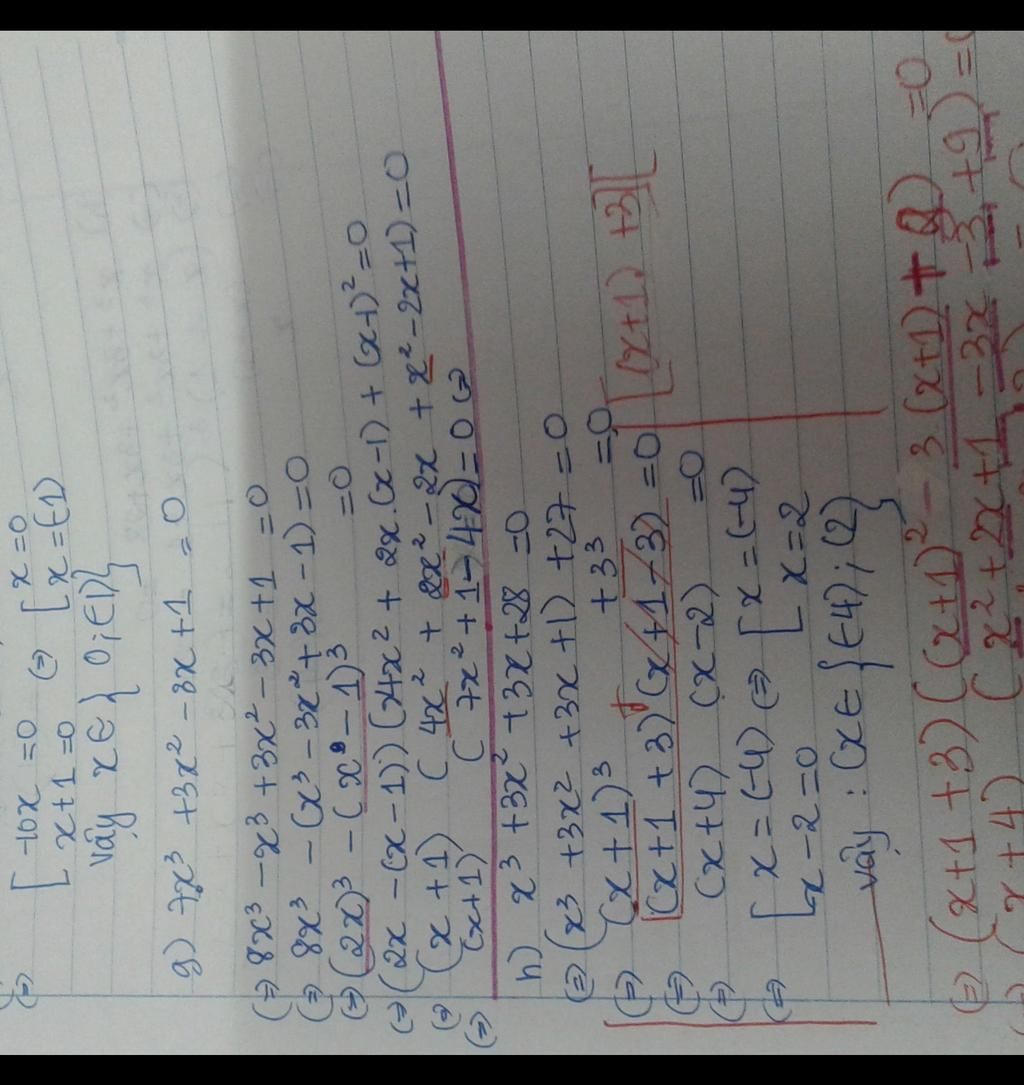 (=) [ -10x = 0 (=) [ x = 0
x + 1 = 0 x = (-1)
vậy x ∈ { 0 ; (-1) }
g) 7x³ + 3x² - 3x + 1 = 0
(=) 8x³ - x³ + 3x² - 3x + 1 = 0
(=) 8x³ - (x³ - 3x² + 3x - 1) = 0
(=) (2x)³ - (x - 1)³ = 0
(=) (2x - (x - 1)) (4x² + 2x.(x - 1) + (x - 1)² = 0
(=) (x + 1) (4x² + 2x² - 2x + x² - 2x + 1) = 0
(=) (x + 1) (7x² + 1 - 4x) = 0 (=)
h) x³ + 3x² + 3x + 28 = 0
(=) (x³ + 3x² + 3x + 1) + 27 = 0
(=) (x + 1)³ + 3³ = 0
(=) (x + 1 + 3) (x + 1 - 3) = 0 [(x + 1) + 3][
(=) (x + 4) (x - 2) = 0
(=) [ x = (-4) (=) [ x = (-4)
x - 2 = 0 x = 2
vậy : (x ∈ { (-4) ; (2) }
(=) (x + 1 + 3) ((x + 1)² - 3 (x + 1) + 9) = 0
(x + 4) (x² + 2x + 1 - 3x - 3 + 9) = 0